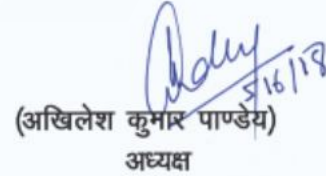 5/6/18
(अखिलेश कुमार पाण्डेय)
अध्यक्ष